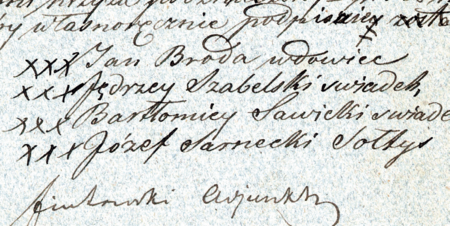 własnoręcznie podpisany
xxx Jan Broda wdowiec
xxx Jędrzey Szabelski swiadek,
xxx Bartłomiey Sawicki swiade
xxx Józef Sarnecki Sołtys
Adjunkt